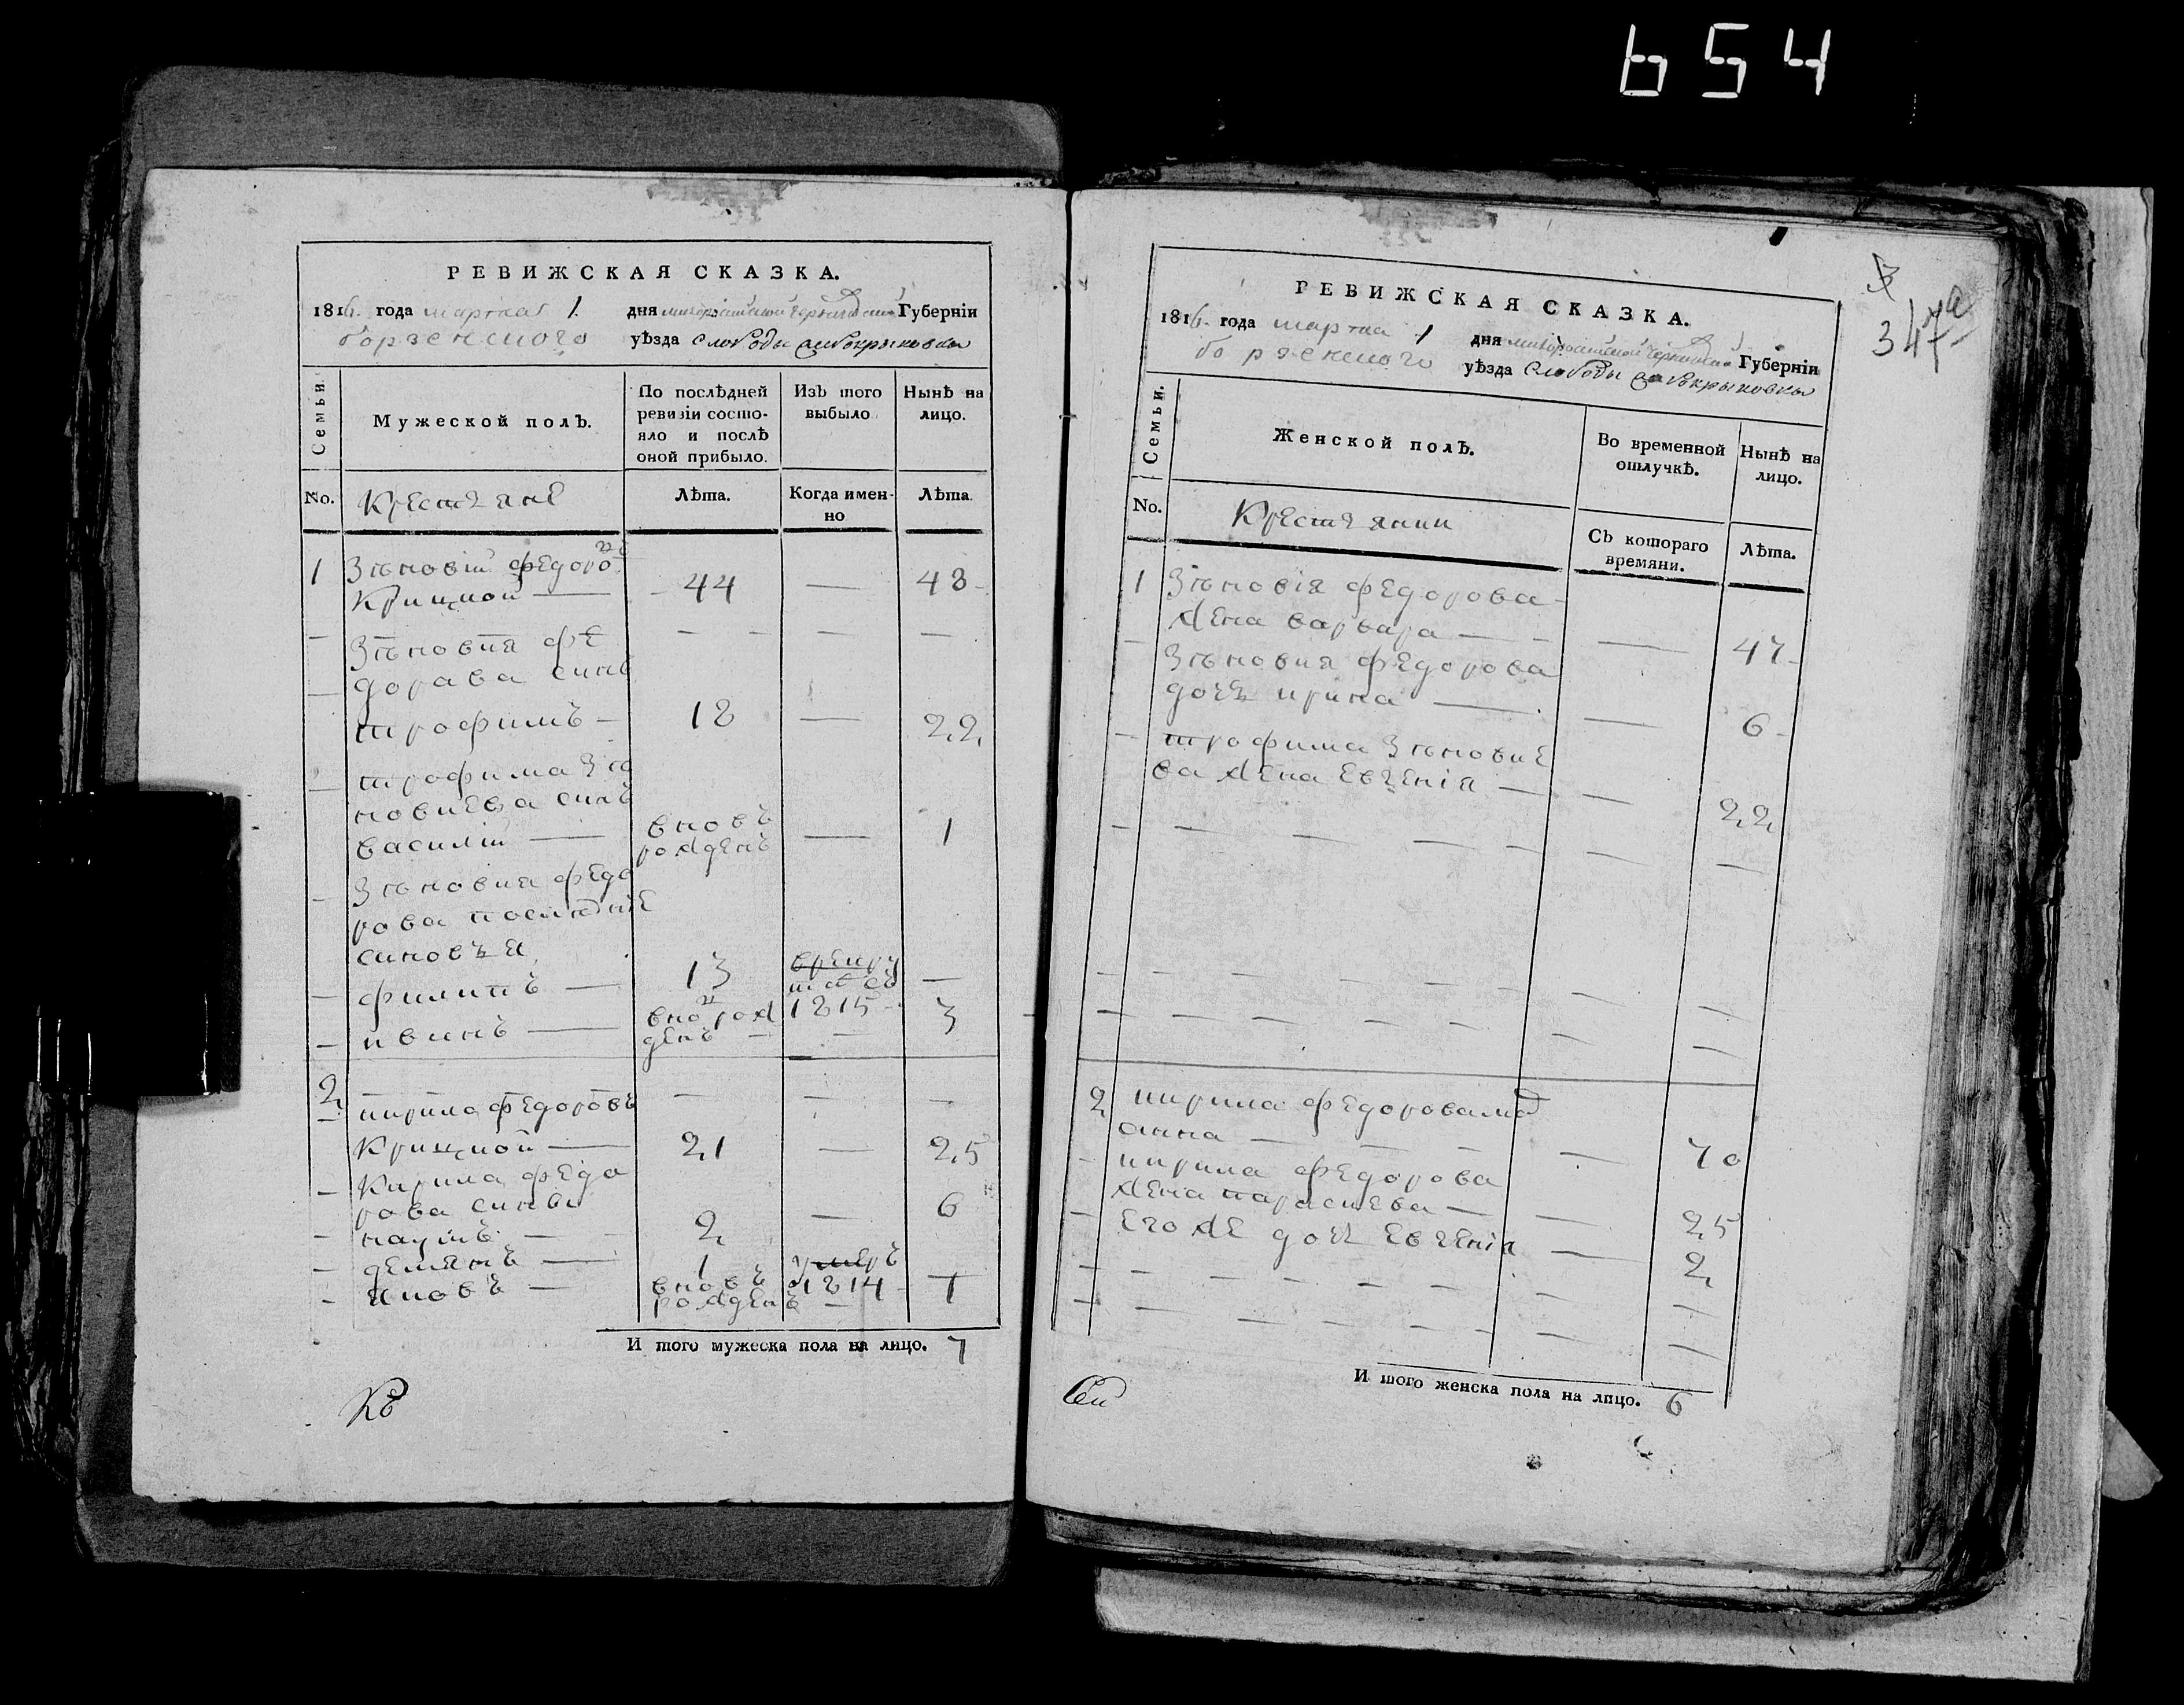 654
РЕВИЖСКАЯ СКАЗКА.
1816. года марта 1. дня малороссийской черниговской Губерніи
борзенского уѣзда слободы
Семьи.
Мужеской полъ.
По послѣдней ревизіи состояло и послѣ оной прибыло.
Изъ того выбыло
Нынѣ на лицо.
No.
Крестяне
Лѣта.
Когда именно
Лѣта
1 Зѣновій федоро въ
Крицкой — 44 — 48
— Зѣновия фе — — — —
дорава синъ
трофимъ — 18 — 22
— трофима Зѣ
новиева синъ
василій — вновъ рожденъ — 1
— Зѣновия федо
рова последніе
синовья
— филипъ — 13 врекруты 1815 —
— иванъ — вновъ рожденъ — 3
2 кирила федоровъ — — —
Крицкой — 21 — 25
— Кирила федо
рова сины
— наумъ — 2 — 6
— демянъ — 1 умеръ 1814 —
— яковъ — вновъ рожденъ — 1
И того мужеска пола на лицо. 7
Къ
347
РЕВИЖСКАЯ СКАЗКА.
1816. года марта 1 дня малороссийской черниговской Губерніи
борзенского уѣзда слободы
Семьи.
Женской полъ.
Во временной отлучкѣ.
Нынѣ на лицо.
No.
Крестянки
Съ котораго времяни.
Лѣта.
1 Зѣновія федорова
жена варвара — — 47
— Зѣновия федорова
дочь ирина — — 6
— трофима Зѣновие
ва жена Евгенія — — 22
2 кирила федорова мат
анна — — 70
— кирила федорова
жена параскева — — 25
— Его же дочь Евгенія — 2
И того женска пола на лицо. 6